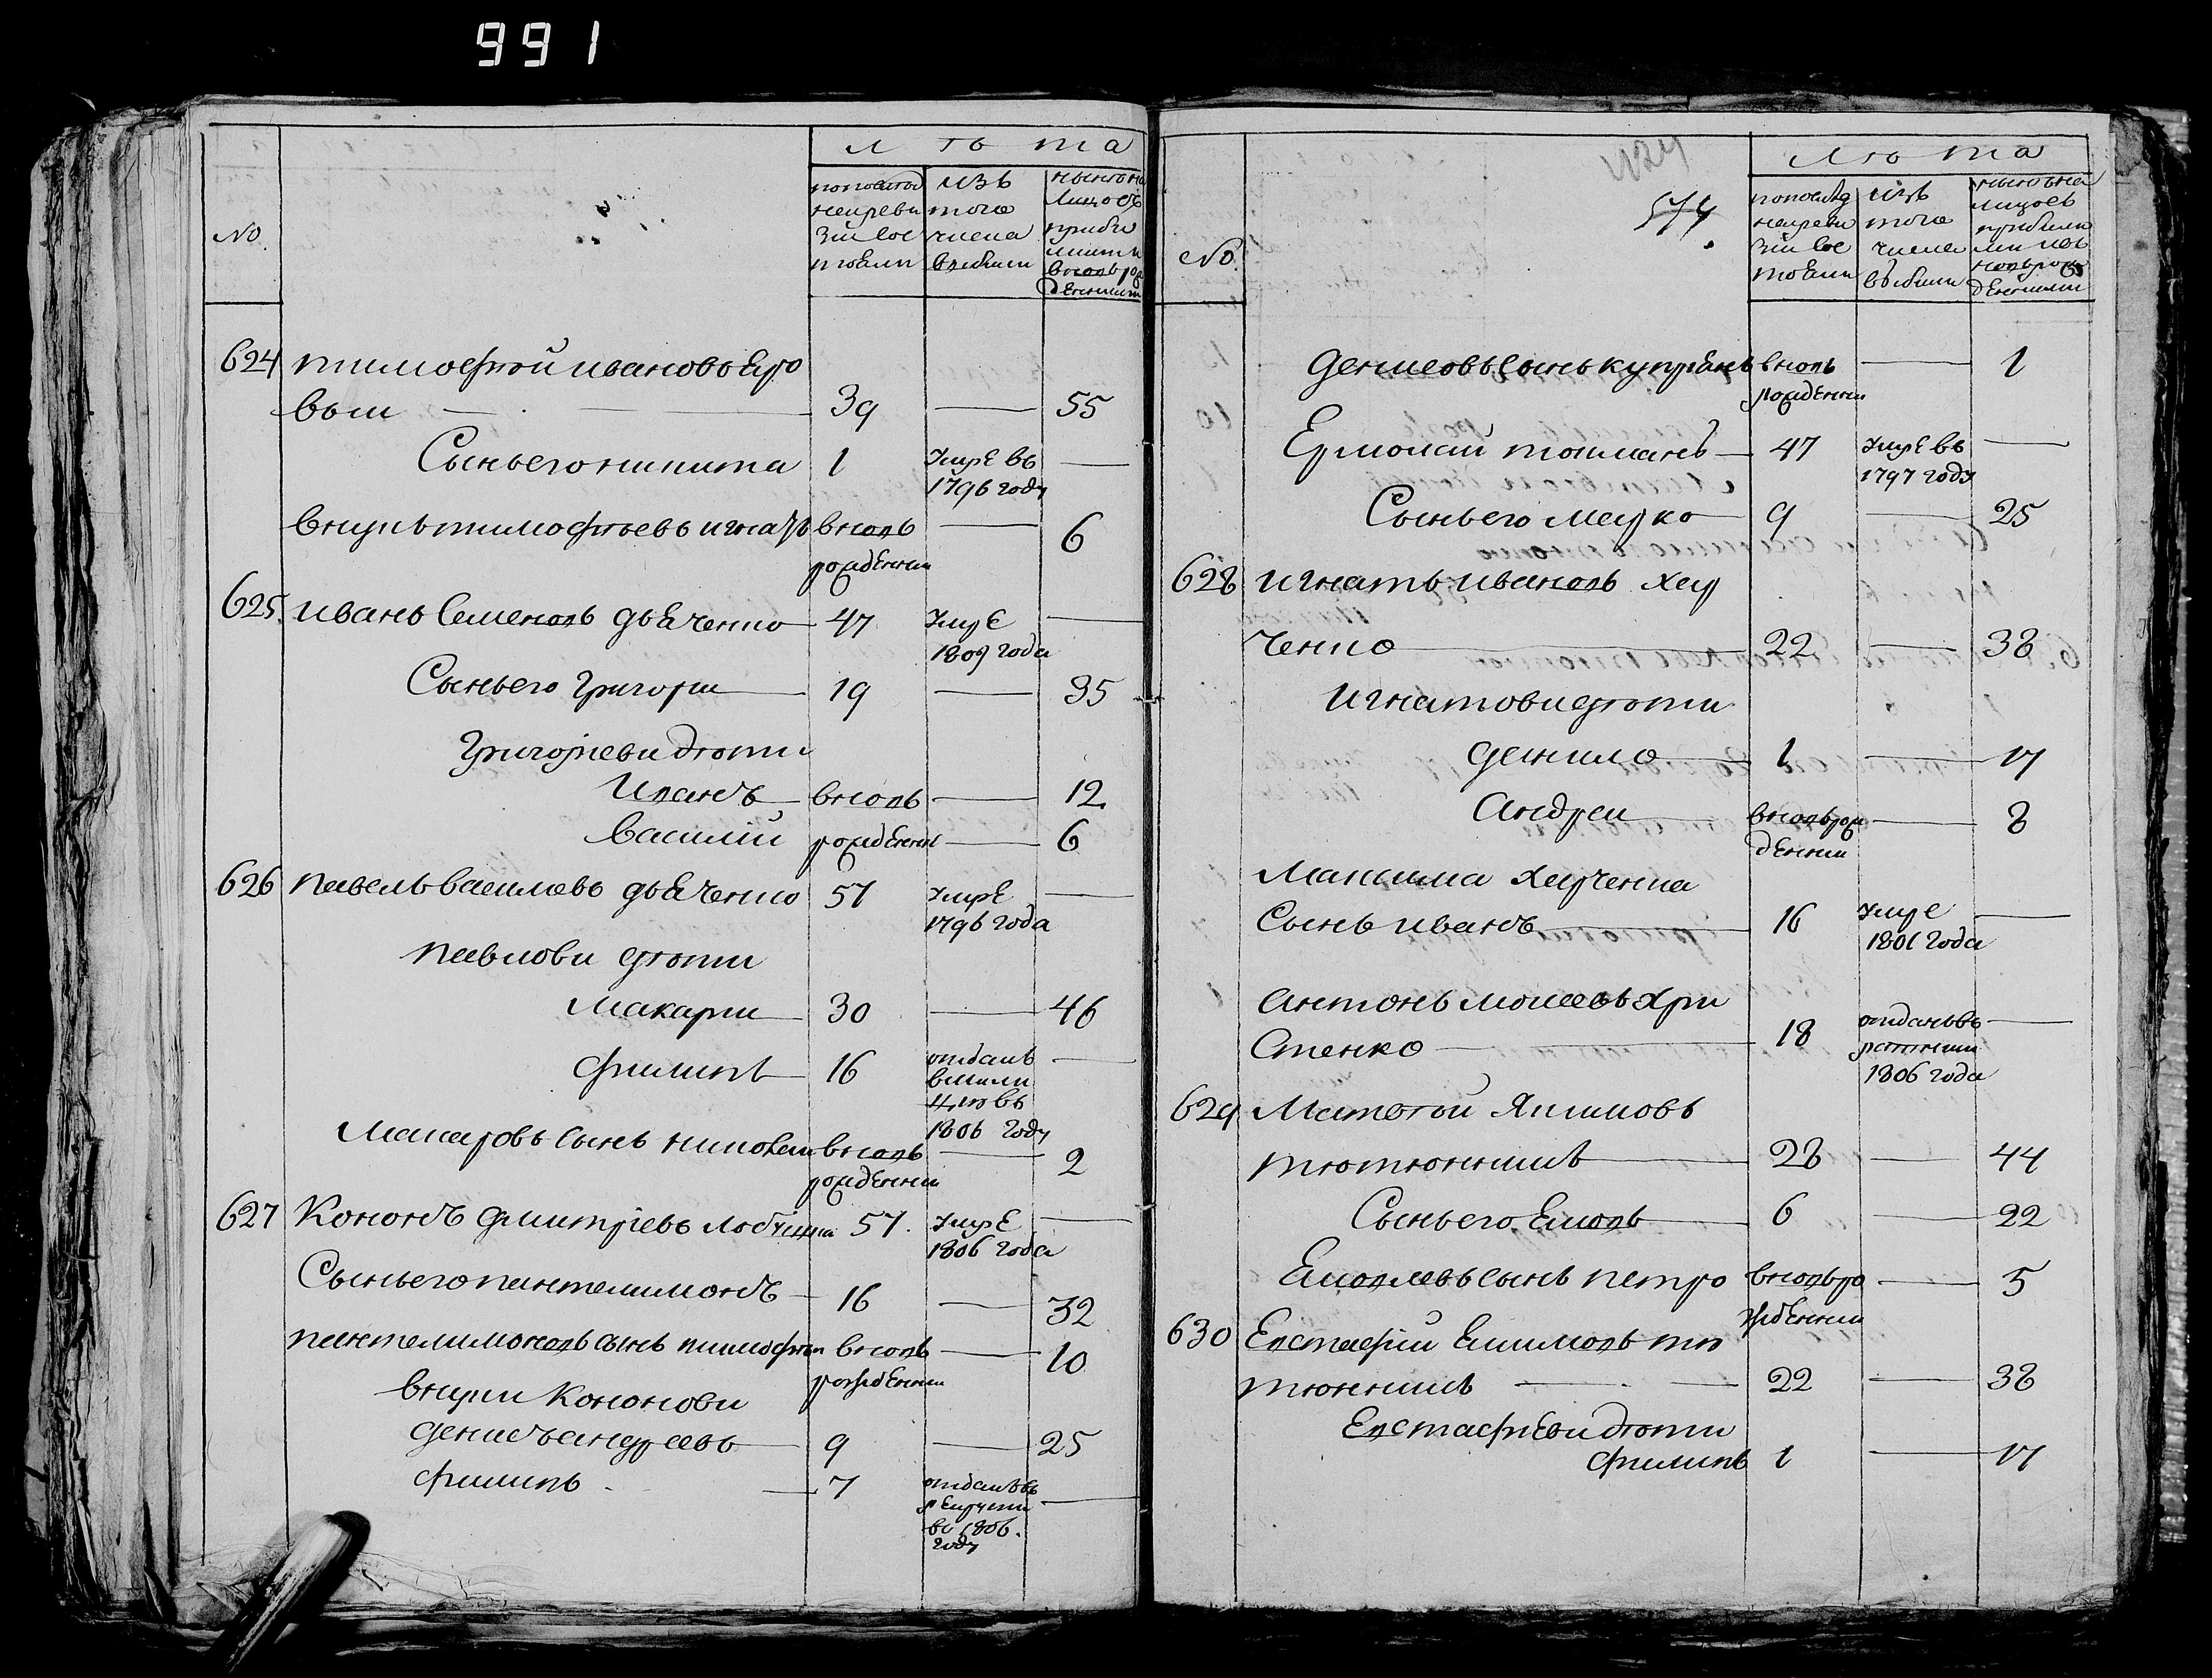 991
лѣта
№
по последней ревизіи состояли
изъ того числа выбыли
ныне на лицо съ прибылими и вновь рожденними
624 тимофѣй ивановъ Яро
выи 39 — 55
Сынъ его никита 1 умре въ —
1796 году
внукъ тимофѣевъ игнатъ вновь — 6
рожденни
625 иванъ Семеновъ дьяченко 47 умре —
1809 года
Сынъ его Григори 19 — 35
Григориеви дѣти
Иванъ вновь — 12
василій рожденни — 6
626 павелъ василевъ дьяченко 57 умре —
1796 года
павлови дѣти
макари 30 — 46
филипъ 16 отданъ —
в мили
цію въ
1806 году
макаровъ сынъ николаи вновь — 2
рожденни
627 Кононъ дмитріевъ 57 умре —
1806 года
Сынъ его пантелимонъ 16 — 32
пантелимоновъ сынъ тимофѣи вновь — 10
рожденни
внуки Кононови
денисъ андреевъ 9 — 25
филипъ 7 отданъ въ —
рекрути
в 1806
году
574
лѣта
№
по послед
ней реви
зій сос
тояли
изъ
того
числа
выбыли
ныне на
лицо съ
прибыли
ми и вновь рож
денними
денисовъ сынъ купріянъ вновь — 1
рожденни
Ермолай товманъ 47 умре въ —
1797 году
Сынъ его марко 9 — 25
628 игнатъ ивановъ хар
ченко 22 — 38
игнатови дѣти
данило 1 — 17
андреи вновь рож — 8
денни
максима харченка
Сынъ иванъ 16 умре —
1801 года
антонъ моисеевъ хри
стенко 18 отданъ въ —
ратники
1806 года
629 Матвѣй Якимовъ
тютюнникъ 28 — 44
Сынъ его Яковъ 6 — 22
Яковлевъ сынъ петро вновь ро — 5
жденни
630 Евстафій Якимовъ тю
тюнникъ 22 — 38
Евстафиеви дѣти
филипъ 1 — 17